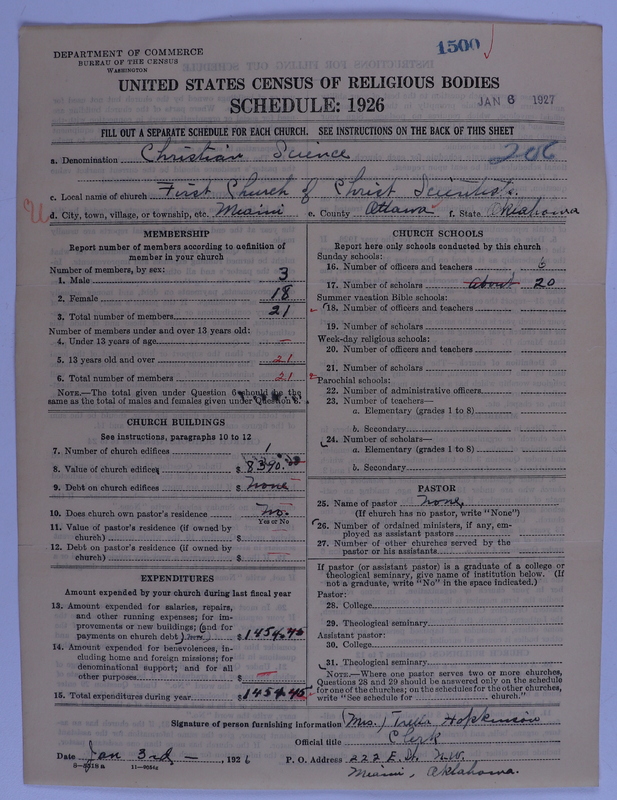 1500
DEPARTMENT OF COMMERCE
BUREAU OF THE CENSUS
WASHINGTON
UNITED STATES CENSUS OF RELIGIOUS BODIES
SCHEDULE: 1926
JAN 6 1927
FILL OUT A SEPARATE SCHEDULE FOR EACH CHURCH. SEE INSTRUCTIONS ON THE BACK OF THIS SHEET
a. Denomination Christian Science 206
c. Local name of church First Church of Christ Scientists.
d. City, town, village, or township, etc. Miami e. County Ottawa f. State Oklahoma
MEMBERSHIP
Report number of members according to definition of
member in your church
Number of members, by sex:
1. Male 3
2. Female 18
3. Total number of members 21
Number of members under and over 13 years old:
4. Under 13 years of age —
5. 13 years old and over 21
6. Total number of members 21
NOTE.—The total given under Question 6 should be the
same as the total of males and females given under Question 3.
CHURCH BUILDINGS
See instructions, paragraphs 10 to 12
7. Number of church edifices 1
8. Value of church edifices $ 8390.00
9. Debt on church edifices $ none
10. Does church own pastor's residence no.
Yes or No
11. Value of pastor's residence (if owned by
church) $
12. Debt on pastor's residence (if owned by
church) $
EXPENDITURES
Amount expended by your church during last fiscal year
13. Amount expended for salaries, repairs,
and other running expenses; for im-
provements or new buildings; (and for
payments on church debt) none $ 1454.45
14. Amount expended for benevolences, in-
cluding home and foreign missions; for
denominational support; and for all
other purposes $ —
15. Total expenditures during year $ 1454.45
CHURCH SCHOOLS
Report here only schools conducted by this church
Sunday schools:
16. Number of officers and teachers 6
17. Number of scholars About 20
Summer vacation Bible schools:
18. Number of officers and teachers
19. Number of scholars
Week-day religious schools:
20. Number of officers and teachers
21. Number of scholars
Parochial schools:
22. Number of administrative officers
23. Number of teachers—
a. Elementary (grades 1 to 8)
b. Secondary
24. Number of scholars—
a. Elementary (grades 1 to 8)
b. Secondary
PASTOR
25. Name of pastor none
(If church has no pastor, write "None")
26. Number of ordained ministers, if any, em-
ployed as assistant pastors
27. Number of other churches served by the
pastor or his assistants
If pastor (or assistant pastor) is a graduate of a college or
theological seminary, give name of institution below. (If
not a graduate, write "No" in the space indicated.)
Pastor:
28. College
29. Theological seminary
Assistant pastor:
30. College
31. Theological seminary
NOTE.—Where one pastor serves two or more churches,
Questions 28 and 29 should be answered only on the schedule
for one of the churches; on the schedules for the other churches,
write "See schedule for church."
Signature of person furnishing information (Mrs.) Hopkinson
Official title Clerk
Date Jan 3rd — , 1926 P. O. Address 222 E. St. N.W.
8-5518a 11-9034c Miami, Oklahoma.